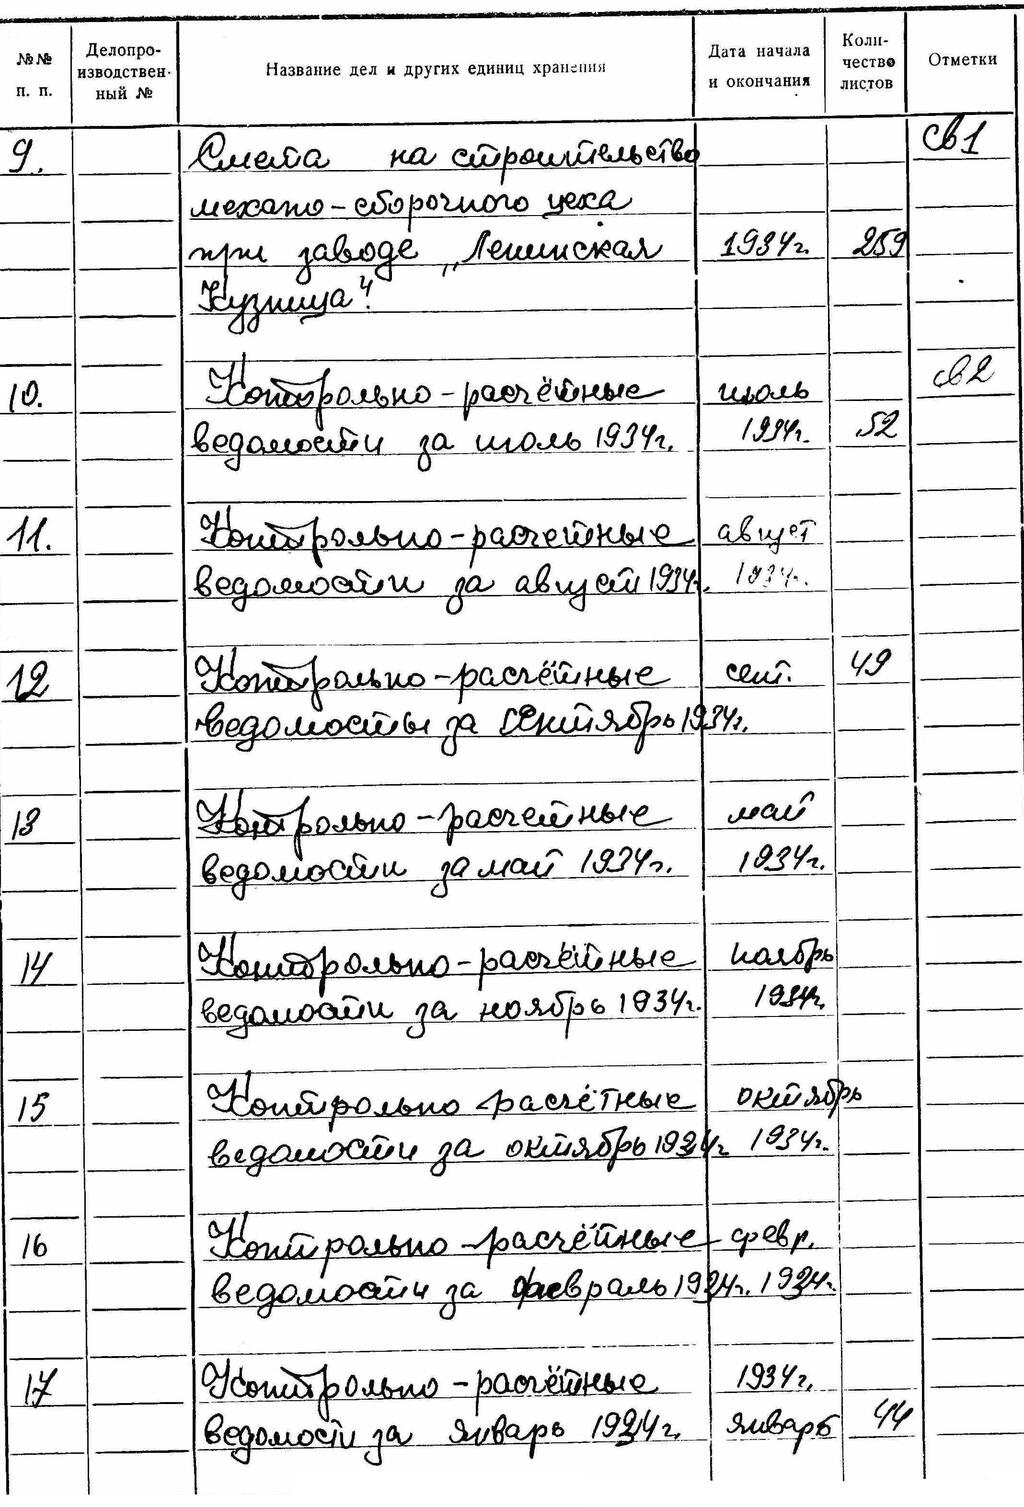 №№ п. п.
Делопроизводственный №
Название дел и других единиц хранения
Дата начала и окончания
Количество листов
Отметки
9. Смета на строительство св1
механо-сборочного цеха
при заводе „Ленинская 1934г. 259
Кузница".
10. Контрольно-расчётные июль св2
ведомости за июль 1934г. 1934г. 52
11. Контрольно-расчетные август
ведомости за август 1934г. 1934г.
12 Контрольно-расчётные сент. 49
ведомосты за сентябрь 1934г.
13 Контрольно-расчетные май
ведомости за май 1934г. 1934г.
14 Контрольно-расчётные ноябрь
ведомости за ноябрь 1934г. 1934г.
15 Контрольно-расчётные октябрь
ведомости за октябрь 1934г 1934г.
16 Контрольно-расчётные февр.
ведомости за февраль 1934г. 1934г.
17 Контрольно-расчётные 1934г.
ведомости за январь 1934г. январь 44